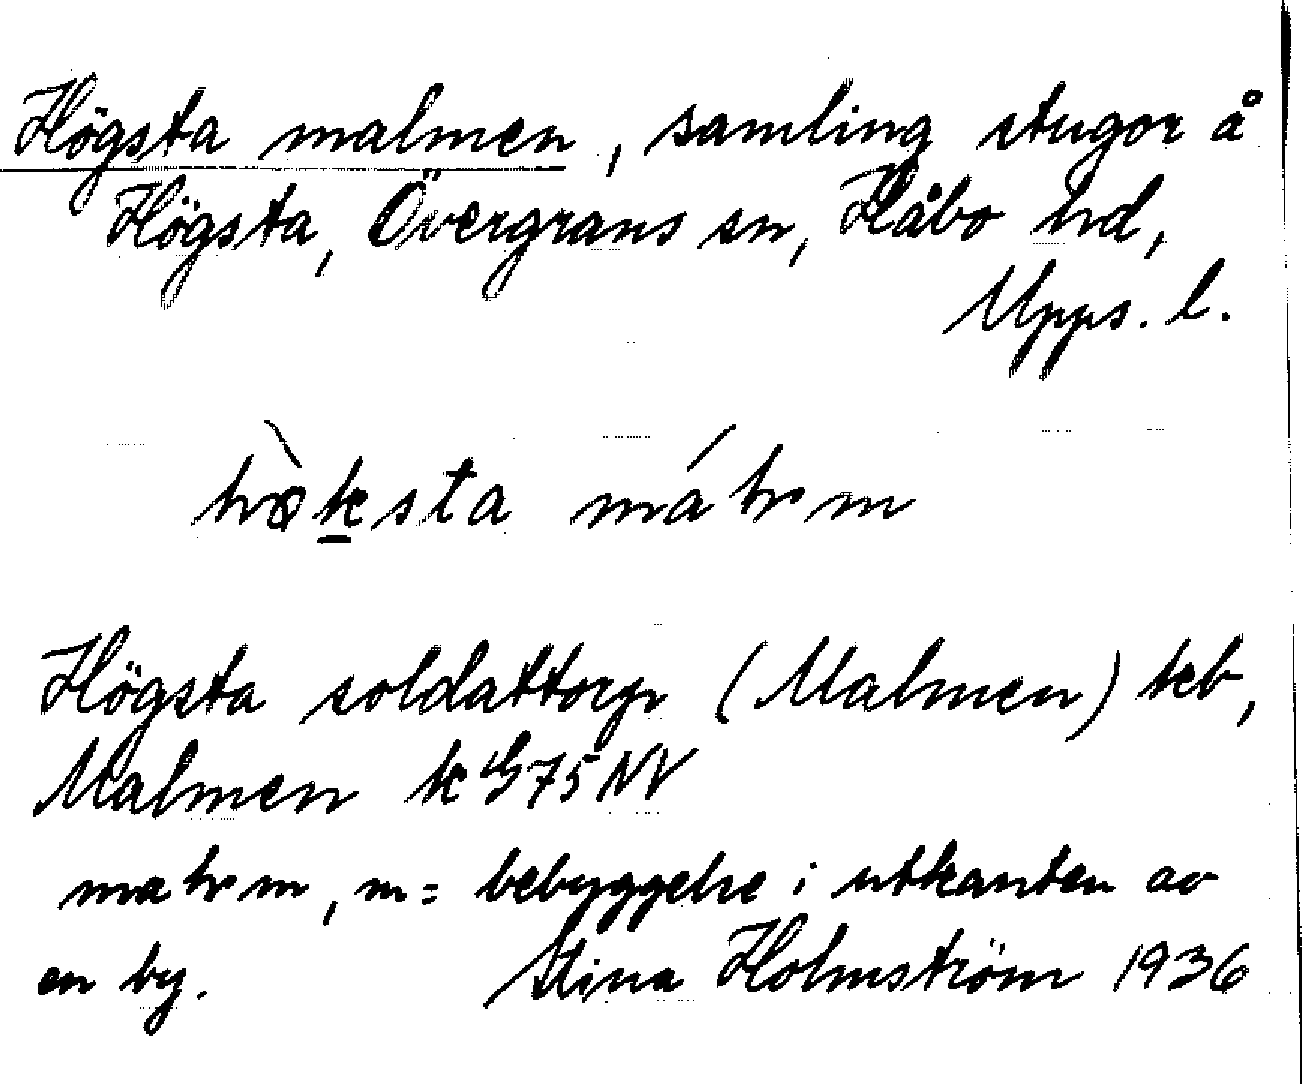 Högsta malmen, samling stugor å
Högsta, Övergrans sn, Håbo hd,
Upps. l.
hø̀ksta máhrm
Högsta soldattorp (Malmen) kb,
Malmen k G75NV
mahrm, m = bebyggelse i utkanten av
en by. Stina Holmström 1936